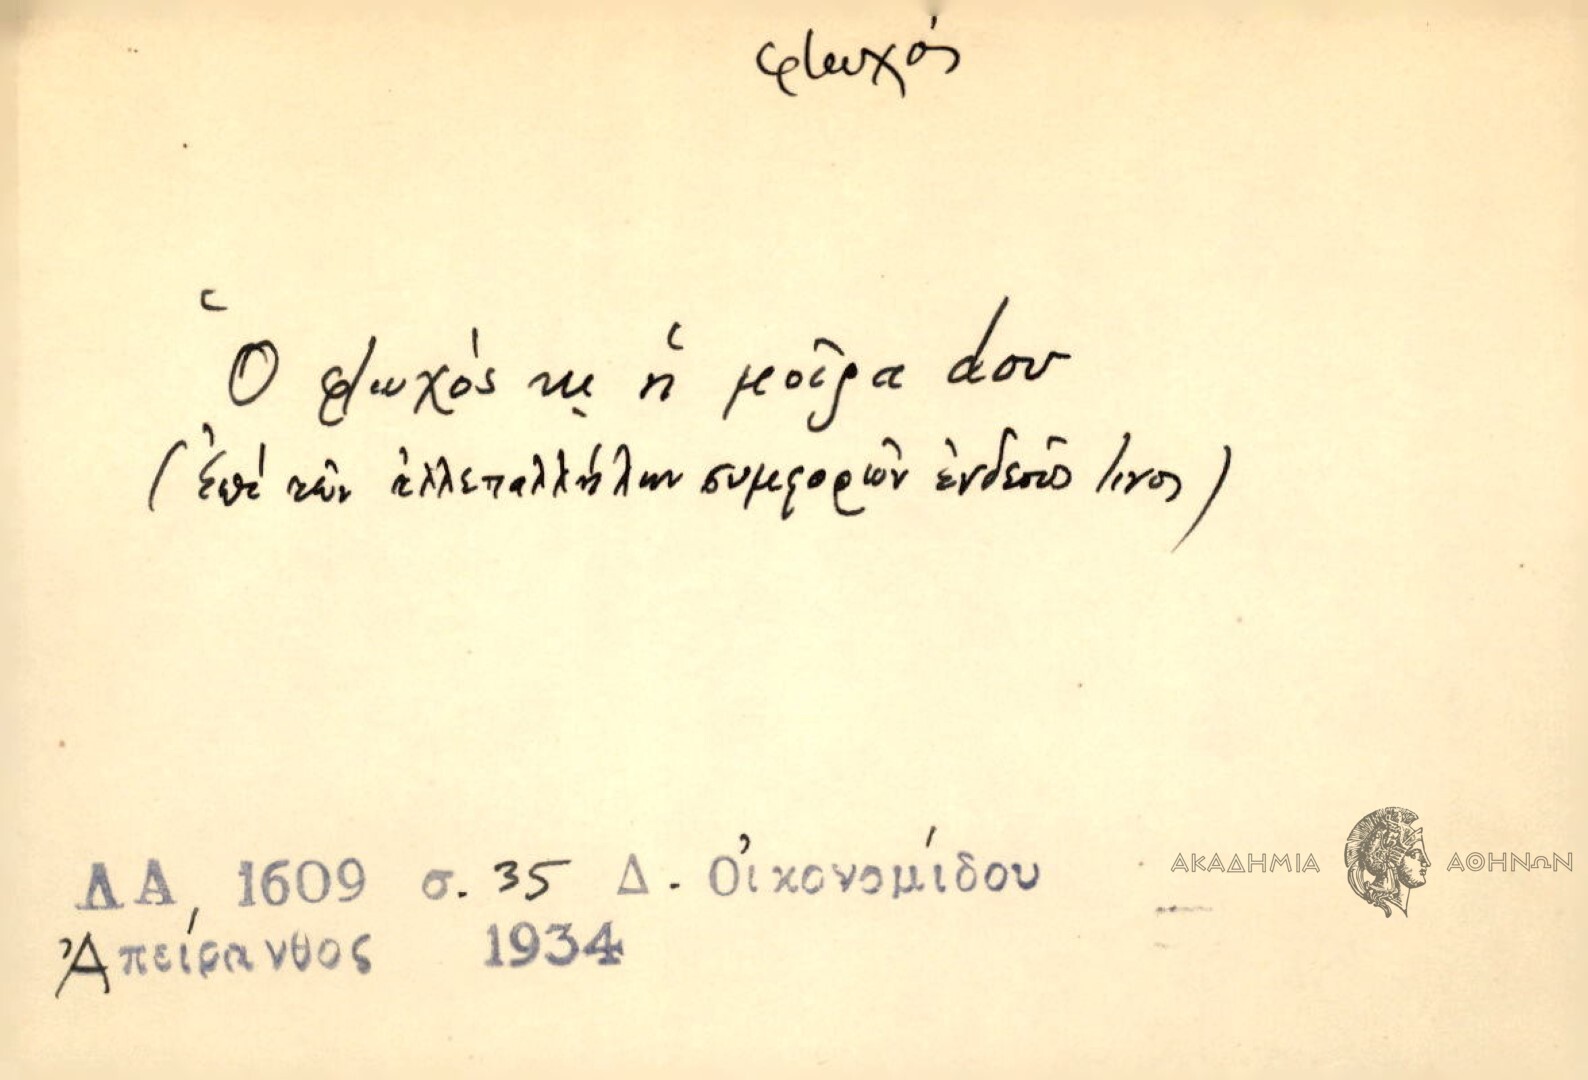 φτωχός
Ὁ φτωχὸς κι ἡ μοῖρα dου
(ἐπὶ τῶν ἀλλεπαλλήλων συμφορῶν ἐνδεοῦς τινος)
ΛΑ, 1609 σ. 35 Δ. Οἰκονομίδου
Ἀπείρανθος 1934
ΑΚΑΔΗΜΙΑ ΑΘΗΝΩΝ